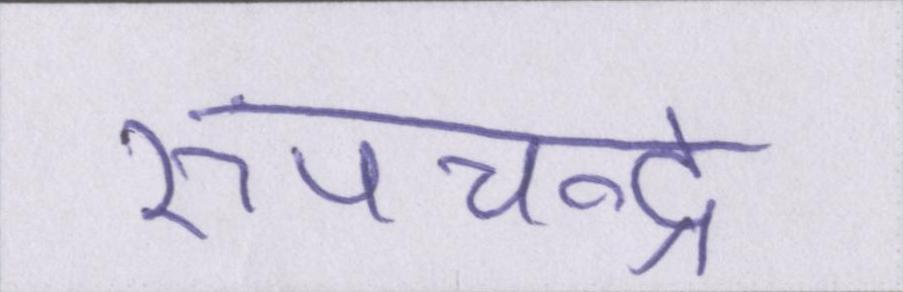 रुपचन्द्र